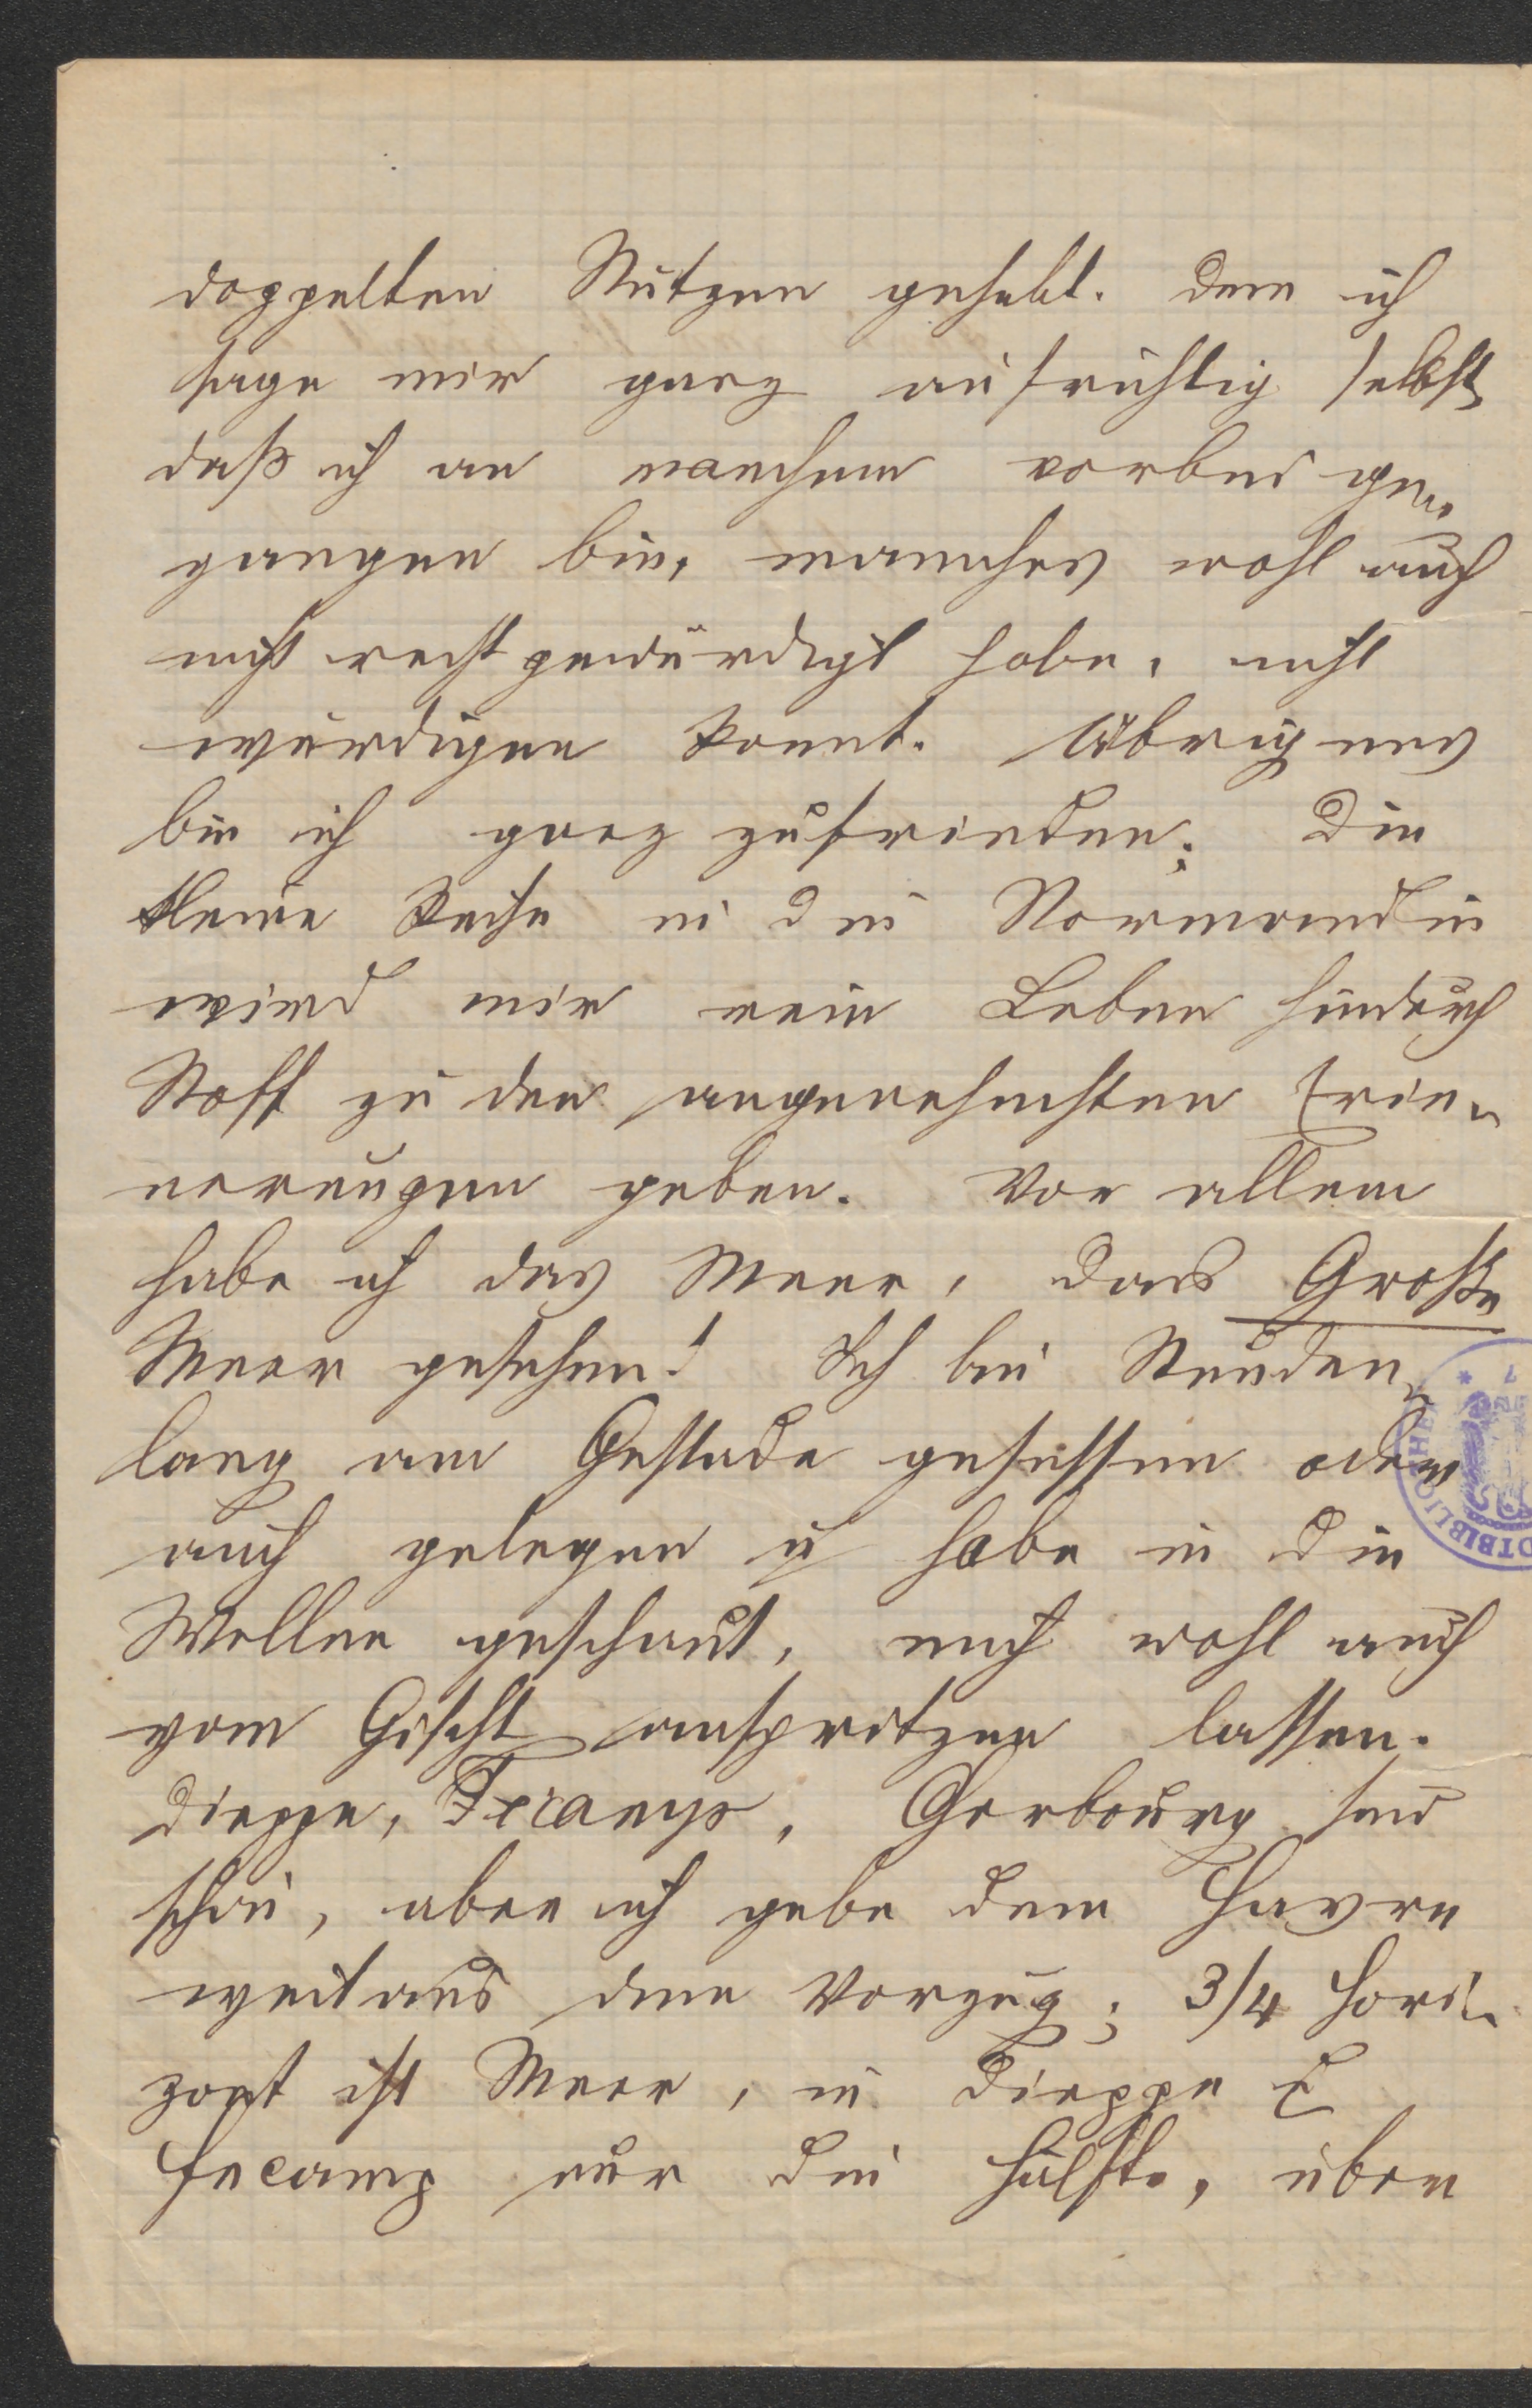 doppelten Nutzen gehabt. Denn ich
sage mir ganz aufrichtig selbst,
daß ich an manchem vorbei ge-
gangen bin, manches wohl auch
nicht recht gewürdigt habe, nicht
würdigen konnt. Übrigens
bin ich ganz zufrieden; die
kleine Reise in die Normandie
wird mir mein Leben hindurch
Stoff zu den angenehmsten Erin-
nerungen geben. Vor allem
habe ich das Meer, das Große
Meer gesehen! Ich bin Stunden-
lang am Gestade gesessen oder
auch gelegen u habe in die
Wellen geschaut, mich wohl auch
vom Gischt anspritzen lassen.
Dieppe, Fecamp, Cherbourg sind
schön, aber ich gebe dem Havre
weitaus den Vorzug; 3/4 Hori-
zont ist Meer, in Dieppe &
Fecamp nur die Hälfte, über